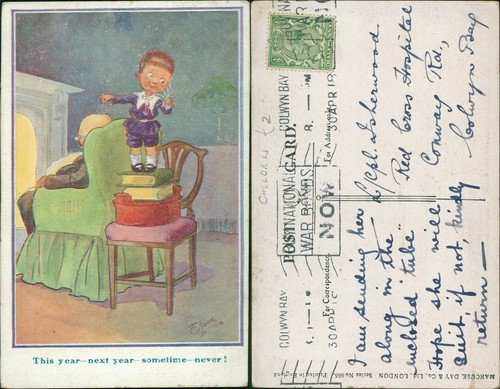 This year—next year—sometime—never!
COLWYN BAY
30 APR 18
NATIONAL
WAR BONDS
NOW
COLWYN BAY
30 APR 18
POST CARD.
For Correspondence
For Address
CHILDREN £2
L/Cpl. Isherwood
Red Cross Hospital
Conway Rd.,
Colwyn Bay
I am sending her
along in the
enclosed "tube"
Hope she will
suit, if not, kindly
return —
MARCUSE, DAY & Co., Ltd., LONDON.
Printed in England